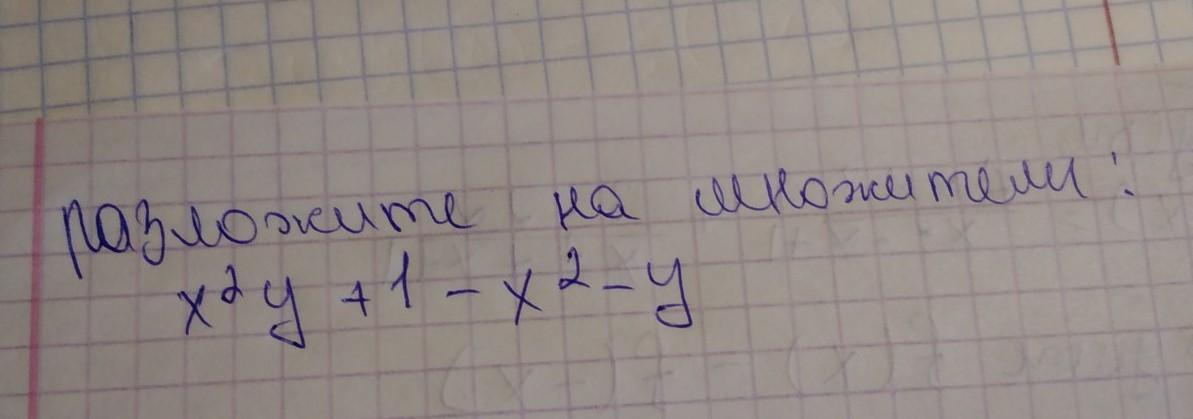 разложите на множители:
x²y +1 - x² - y